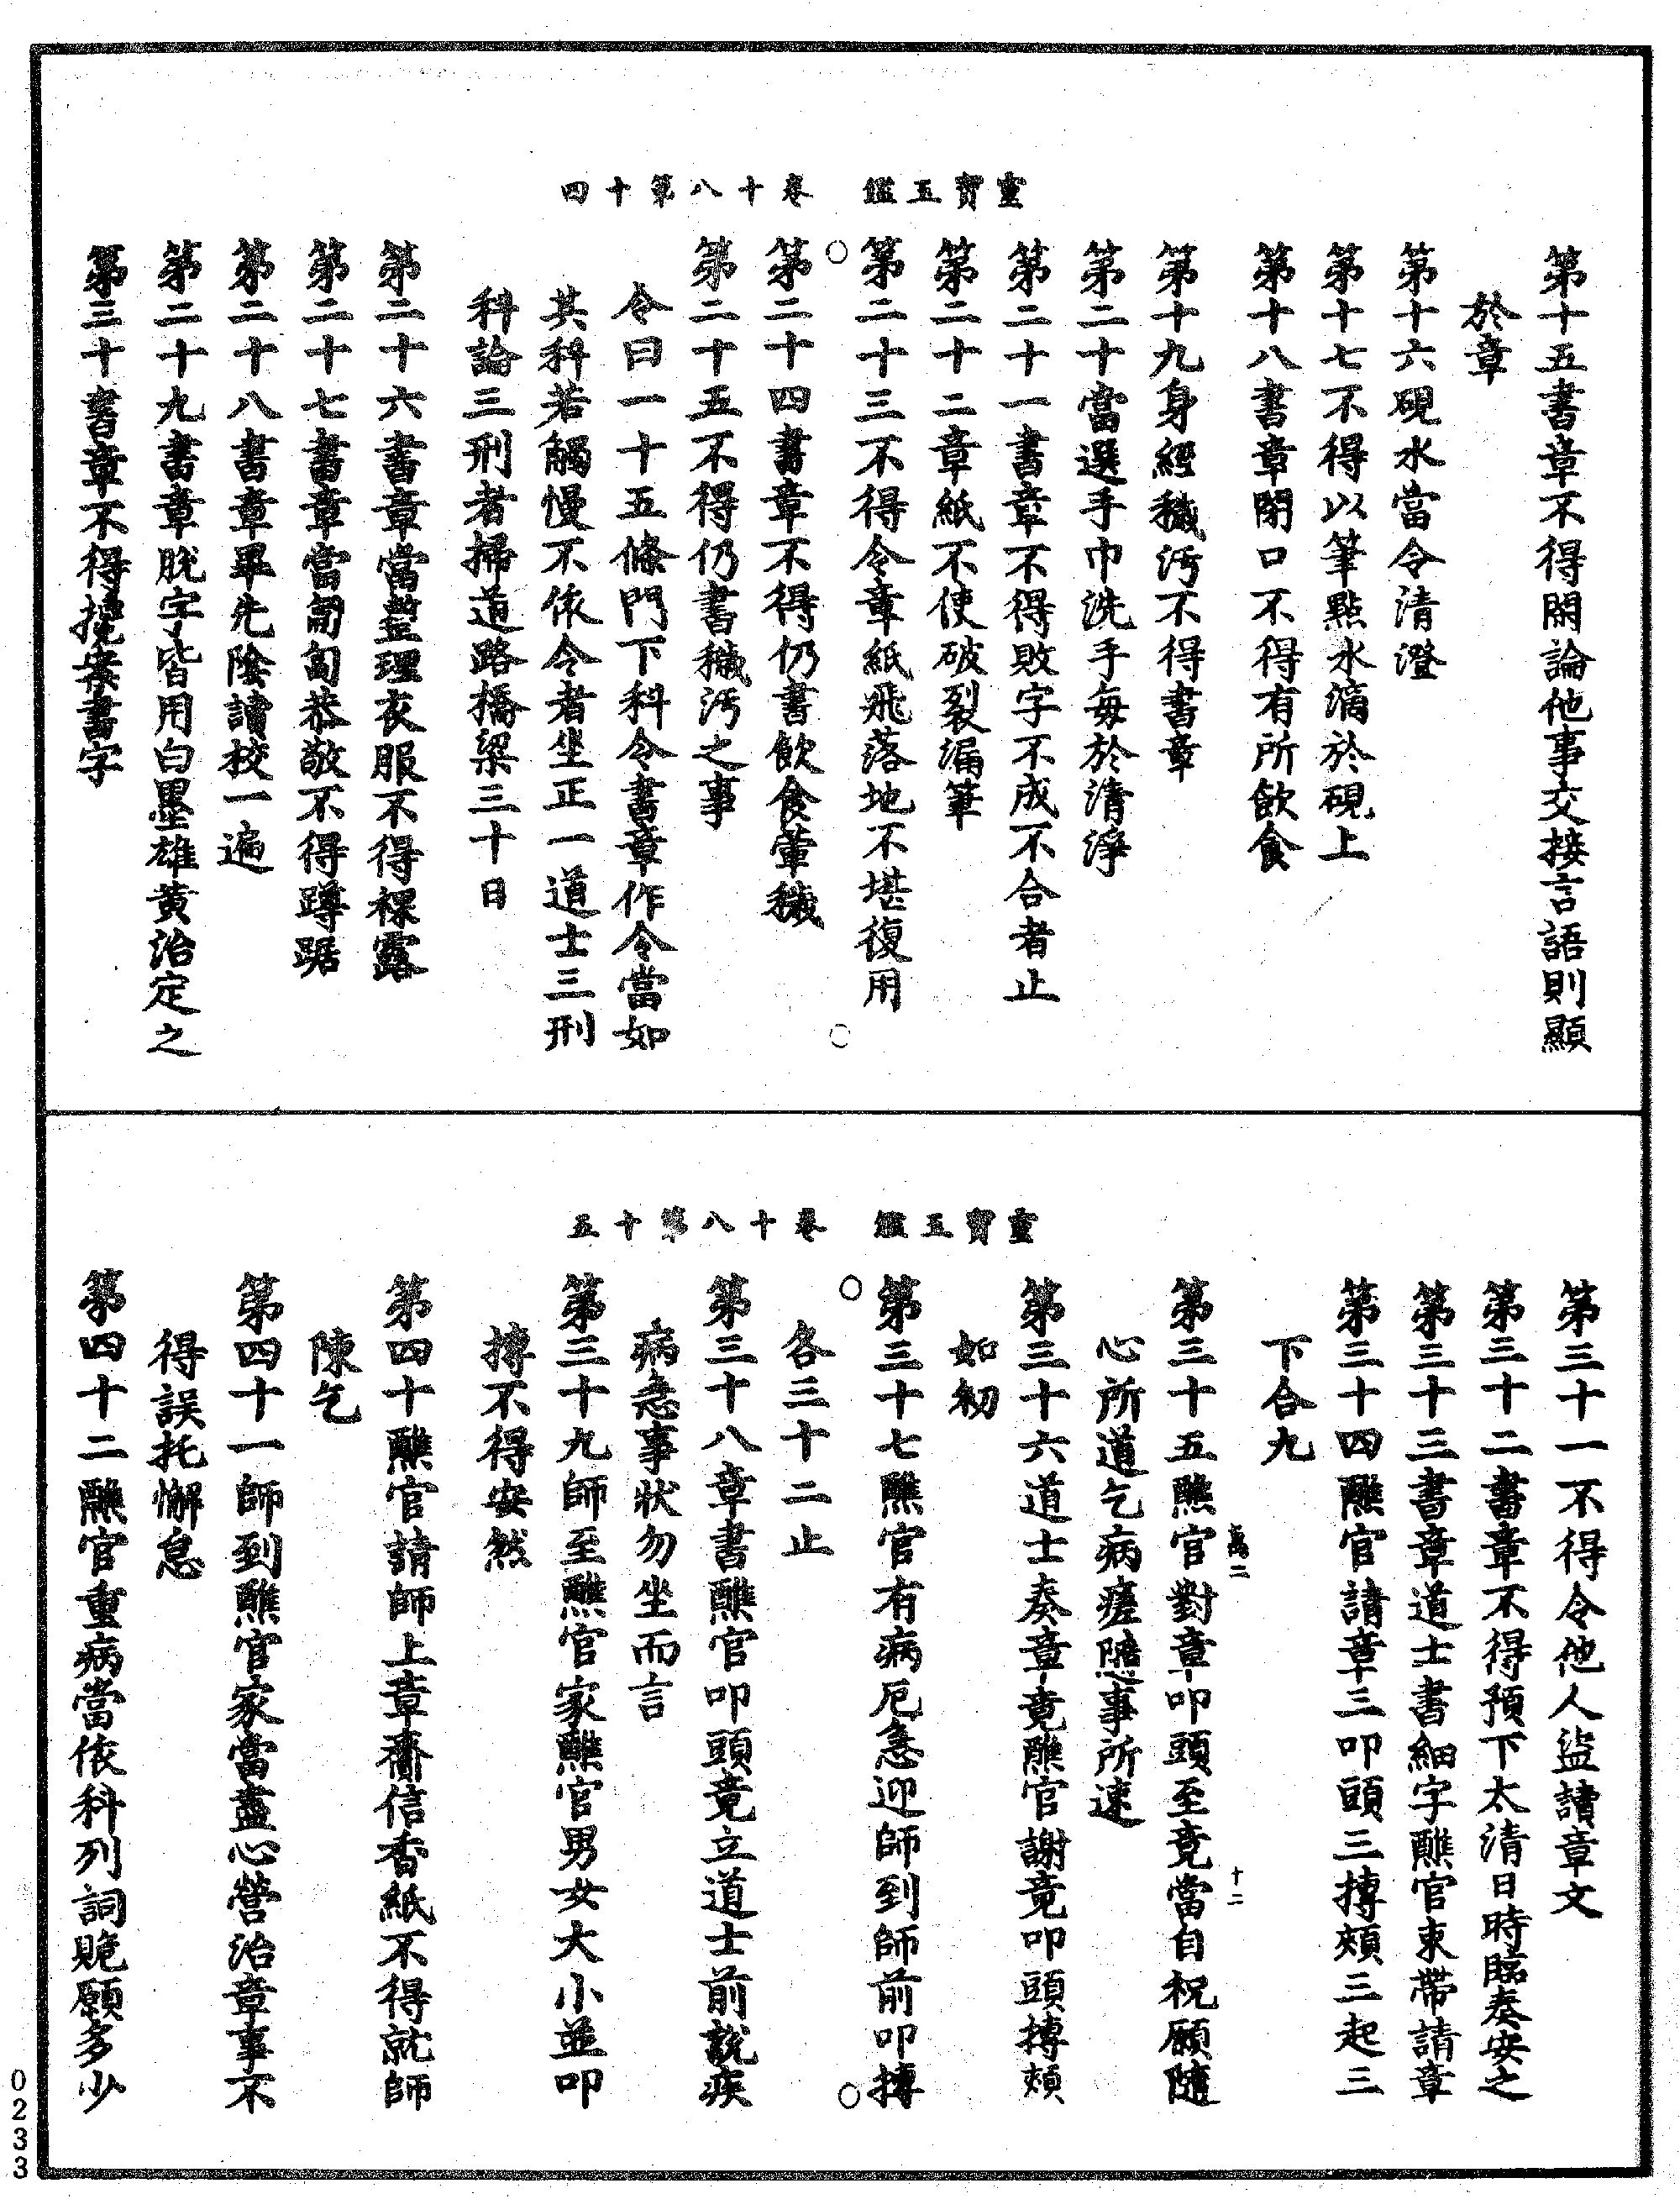 靈寶玉鑑　卷十八第十四
第十五書章不得閑論他事交接言語則顯
於章
第十六硯水當令清澄
第十七不得以筆點水滴於硯上
第十八書章閉口不得有所飲食
第十九身經穢汚不得書章
第二十當選手巾洗手每於清淨
第二十一書章不得敗字不成不合者止
第二十二章紙不使破裂漏筆
第二十三不得令章紙飛落地不堪復用
第二十四書章不得仍書飲食葷穢
第二十五不得仍書穢汚之事
令曰一十五條門下科令書章作令當如
其科若觸慢不依令者坐正一道士三刑
科論三刑者掃道路橋梁三十日
第二十六書章當整理衣服不得裸露
第二十七書章當匍匐恭敬不得蹲踞
第二十八書章畢先陰讀校一遍
第二十九書章脫字皆用白墨雄黃治定之
第三十書章不得攙接書字
靈寶玉鑑　卷十八第十五
第三十一不得令他人盜讀章文
第三十二書章不得預下太清日時臨奏安之
第三十三書章道士書細字醮官束帶請章
第三十四醮官請章三叩頭三搏頰三起三
下合九
第三十五醮官對章叩頭至竟當自祝願隨
心所道乞病瘥隨事所速
萬二
十二
第三十六道士奏章竟醮官謝竟叩頭搏頰
如初
第三十七醮官有病厄急迎師到師前叩搏
各三十二止
第三十八章書醮官叩頭竟立道士前說疾
病急事狀勿坐而言
第三十九師至醮官家醮官男女大小並叩
搏不得安然
第四十醮官請師上章齎信香紙不得就師
陳乞
第四十一師到醮官家當盡心營治章事不
得誤托懈怠
第四十二醮官重病當依科列詞貺願多少
0233